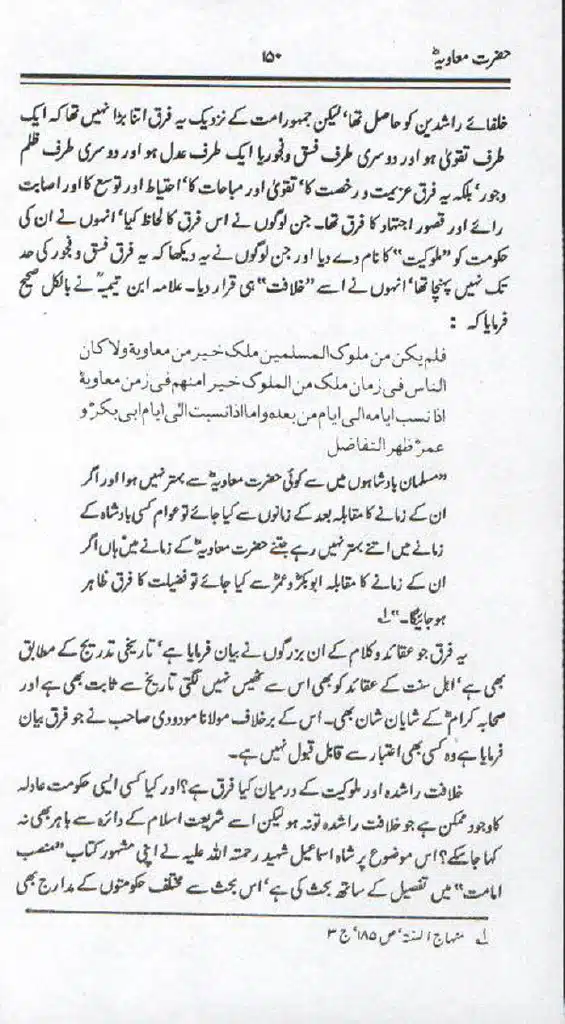 حضرت معاویہؓ
۱۵۰
خلفائے راشدین کو حاصل تھا، لیکن جمہور امت کے نزدیک یہ فرق اتنا بڑا نہیں تھا کہ ایک
طرف تقویٰ ہو اور دوسری طرف فسق و فجور یا ایک طرف عدل ہو اور دوسری طرف ظلم
وجور، بلکہ یہ فرق عزیمت و رخصت کا، تقویٰ اور مباحات کا، احتیاط اور توسع کا اور اصابت
رائے اور قصور اجتہاد کا فرق تھا۔ جن لوگوں نے اس فرق کا لحاظ کیا، انہوں نے ان کی
حکومت کو "ملوکیت" کا نام دے دیا اور جن لوگوں نے یہ دیکھا کہ یہ فرق فسق و فجور کی حد
تک نہیں پہنچا تھا، انہوں نے اسے "خلافت" ہی قرار دیا۔ علامہ ابن تیمیہؒ نے بالکل صحیح
فرمایا کہ :
فلم یکن من ملوک المسلمین ملک خیر من معاویة ولا کان
الناس فی زمان ملک من الملوک خیرا منهم فی زمن معاویة
اذا نسب ایامه الی ایام من بعده واما اذا نسبت الی ایام ابی بکرؓ و
عمرؓ ظهر التفاضل
"مسلمان بادشاہوں میں سے کوئی حضرت معاویہؓ سے بہتر نہیں ہوا اور اگر
ان کے زمانے کا مقابلہ بعد کے زمانوں سے کیا جائے تو عوام کسی بادشاہ کے
زمانے میں اتنے بہتر نہیں رہے جتنے حضرت معاویہؓ کے زمانے میں، ہاں اگر
ان کے زمانے کا مقابلہ ابوبکرؓ و عمرؓ سے کیا جائے تو فضیلت کا فرق ظاہر
ہو جائیگا۔" ۱؎
یہ فرق جو عقائد و کلام کے ان بزرگوں نے بیان فرمایا ہے، تاریخی تدریج کے مطابق
بھی ہے، اہل سنت کے عقائد کو بھی اس سے ٹھیس نہیں لگتی تاریخ سے ثابت بھی ہے اور
صحابہ کرامؓ کے شایان شان بھی۔ اس کے برخلاف مولانا مودودی صاحب نے جو فرق بیان
فرمایا ہے وہ کسی بھی اعتبار سے قابل قبول نہیں ہے۔
خلافت راشدہ اور ملوکیت کے درمیان کیا فرق ہے؟ اور کیا کسی ایسی حکومت عادلہ
کا وجود ممکن ہے جو خلافت راشدہ تو نہ ہو لیکن اسے شریعت اسلام کے دائرہ سے باہر بھی نہ
کہا جا سکے؟ اس موضوع پر شاہ اسماعیل شہید رحمتہ اللہ علیہ نے اپنی مشہور کتاب "منصب
امامت" میں تفصیل کے ساتھ بحث کی ہے، اس بحث سے مختلف حکومتوں کے مدارج بھی
۱؎ منہاج السنۃ، ص ۱۸۵، ج ۳